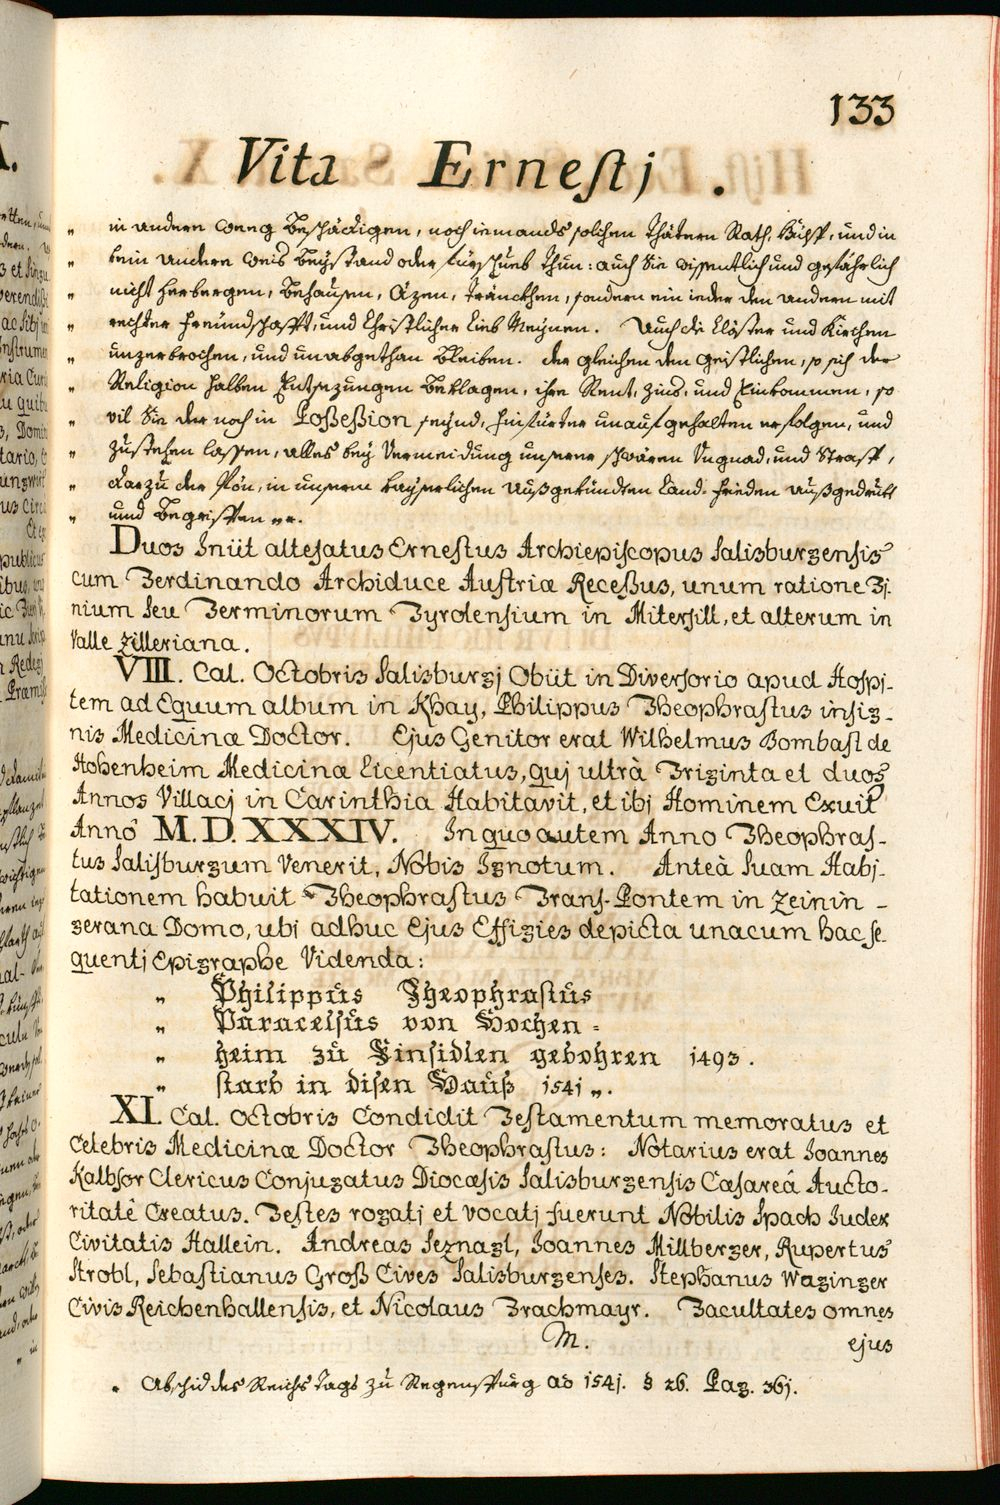 133
Vita Ernestj.
„ in andere weeg beschädigen, noch iemands solchen Thätern Rath, Hülff, und in
„ kein andere weis beystand oder fürschueb thun: auch Sie wissentlich und gefährlich
„ nicht herbergen, behausen, äzen, tränckhen, sondern ein ieder den andern mit
„ rechter freundschafft, und Christlicher Lieb Meynen. Auch die Clöster und Kirchen
„ unzerbrochen, und unabgethan bleiben. der gleichen den Geistlichen, so sich der
„ Religion halben Entsezungen beklagen, ihre Rent, Zins, und Einkommen, so
„ vil Sie der noch in Poßeßion seynd, hinfürter unaufgehalten erfolgen, und
„ zustehen lassen, alles bey Vermeidung unserer schwären Ungnad, und Straff,
„ darzu der Pön, in unserm kayserlichen außgekündten Land-frieden außgedruckt
„ und begriffen „ .
Duos Iniit altefatus Ernestus Archiepiscopus Salisburgensis
cum Ferdinando Archiduce Austriæ Receßus, unum ratione Fi-
nium seu Terminorum Tyrolensium in Mitersill, et alterum in
Valle Zilleriana.
VIII. Cal. Octobris Salisburgj Obiit in Diversorio apud Hospi-
tem ad Equum album in Khay, Philippus Theophrastus insig-
nis Medicinæ Doctor. Ejus Genitor erat Wilhelmus Bombast de
Hohenheim Medicinæ Licentiatus, quj ultrà Triginta et duos
Annos Villacj in Carinthia Habitavit, et ibj Hominem Exuit
Annô M.D.XXXIV. In quo autem Anno Theophras-
tus Salisburgum Venerit, Nobis Ignotum. Anteà Suam Habj-
tationem habuit Theophrastus Trans-Pontem in Zeinin-
gerana Domo, ubj adhuc Ejus Effigies depicta unacum hac se-
quentj Epigraphe Videnda:
„ Philippus Theophrastus
„ Paracelsus von Hochen=
„ heim zu Einsidlen gebohren 1493.
„ starb in disen Hauß 1541 „.
XI. Cal. Octobris Condidit Testamentum memoratus et
Celebris Medicinæ Doctor Theophrastus: Notarius erat Joannes
Kalbsor Clericus Conjugatus Diocæsis Salisburgensis Cæsareâ Aucto-
ritatê Creatus. Testes rogatj et vocatj fuerunt Nobilis Spach Judex
Civitatis Hallein. Andreas Seznagl, Joannes Millberger, Rupertus
Strobl, Sebastianus Groß Cives Salisburgenses. Stephanus Waginger
Civis Reichenhallensis, et Nicolaus Frachmayr. Facultates omnes
M. ejus
„ Abschid des Reichs Tags zu Regenspurg ao 1541. § 26. Pag. 361.